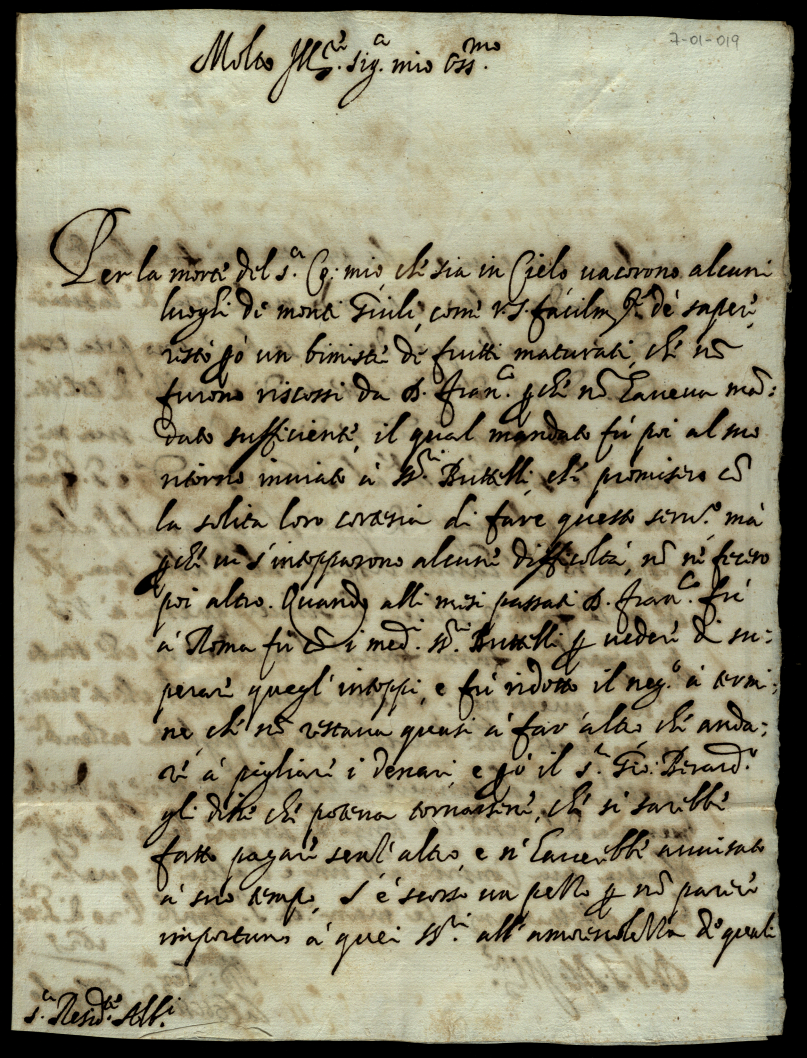 7-01-019
Molto Ill.re Sig.r mio Oss.mo
Per la morte del S.r Co: mio, che sia in Cielo uacorono alcuni
luoghi de monti Giuli, come V.S. facilm.te de' sapere,
restò p̱ò un bimestre de frutti maturati, che nō
furono riscossi da D. Fran.co p̱chè nō haueua man:
dato sufficiente, il qual mandato fù poi al suo
ritorno inuiato à SS.ri Buttelli, che promisero cō
la solita loro cortesia di fare questo seru.o, mà
p̱chè ui s'intopparono alcune difficoltà, nō ne fecero
poi altro. Quando alli mesi passati D. Fran.co fù
à Roma fù cō i med.i SS.ri Buttelli p̱ uedere di su:
perare quegl'intoppi, e fù ridotto il neg.o à termi:
ne, che nō restaua quasi à far altro che anda:
re à pigliare i denari, e p̱ò il S.r Gio: Berard.o
gli disse che poteua tornarsene, che si sarebbe
fatto pagare senz'altro, e n'hauerebbe auuisato
à suo tempo. S'è scorso un pezzo p̱ nō parere
importuno à quei SS.ri all'amoreuolezza de quali
S.r Resid.te Alb.i